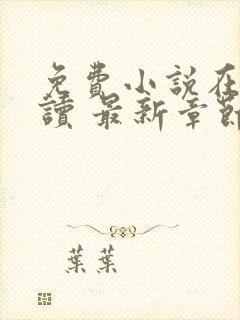 免費小說在
讀 最新章節
葉葉